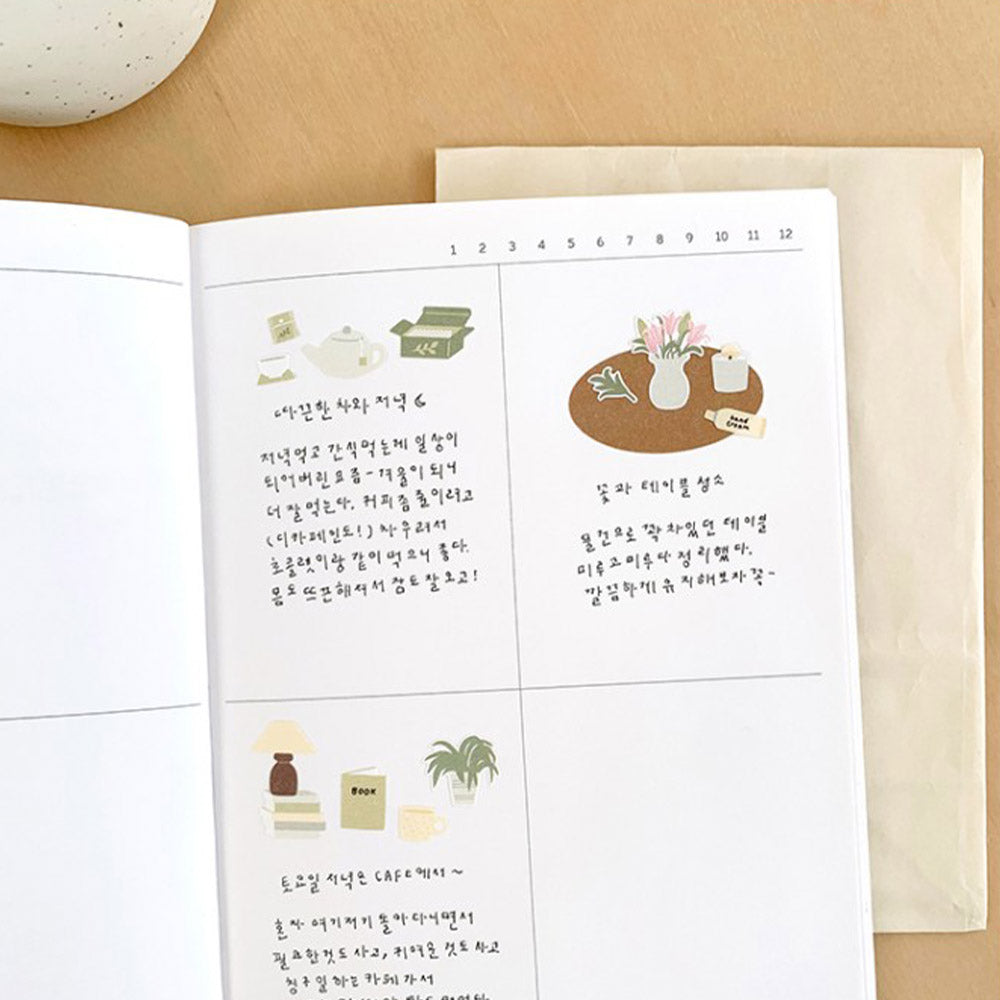 1 2 3 4 5 6 7 8 9 10 11 12
따끈한 차와 저녁
저녁먹고 간식먹는게 일상이
되어버린요즘~ 겨울이 되니
더 잘먹는다. 커피좀 줄이려고
(디카페인도!) 차 우려서
초콜렛이랑 같이 먹으니 좋다.
몸도 뜨끈해져서 잠도 잘 오고!
hand
cream
꽃과 테이블 청소
물건으로 꽉 차있던 테이블
미루고미루다 정리했다.
깔끔하게 유지해보자 꼭~
BOOK
토요일 저녁은 CAFE에서~
혼자 여기저기 돌아다니면서
필요한것도 사고, 귀여운 것도 사고
친구 일하는 카페가서